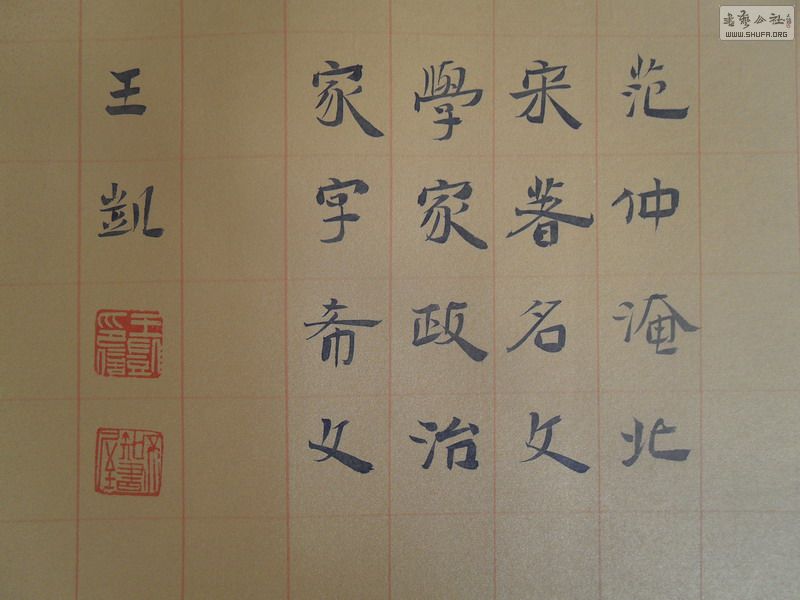 范仲淹北
宋著名文
學家政治
家字希文
王凱
王凱印信
書藝公社
WWW.SHUFA.ORG